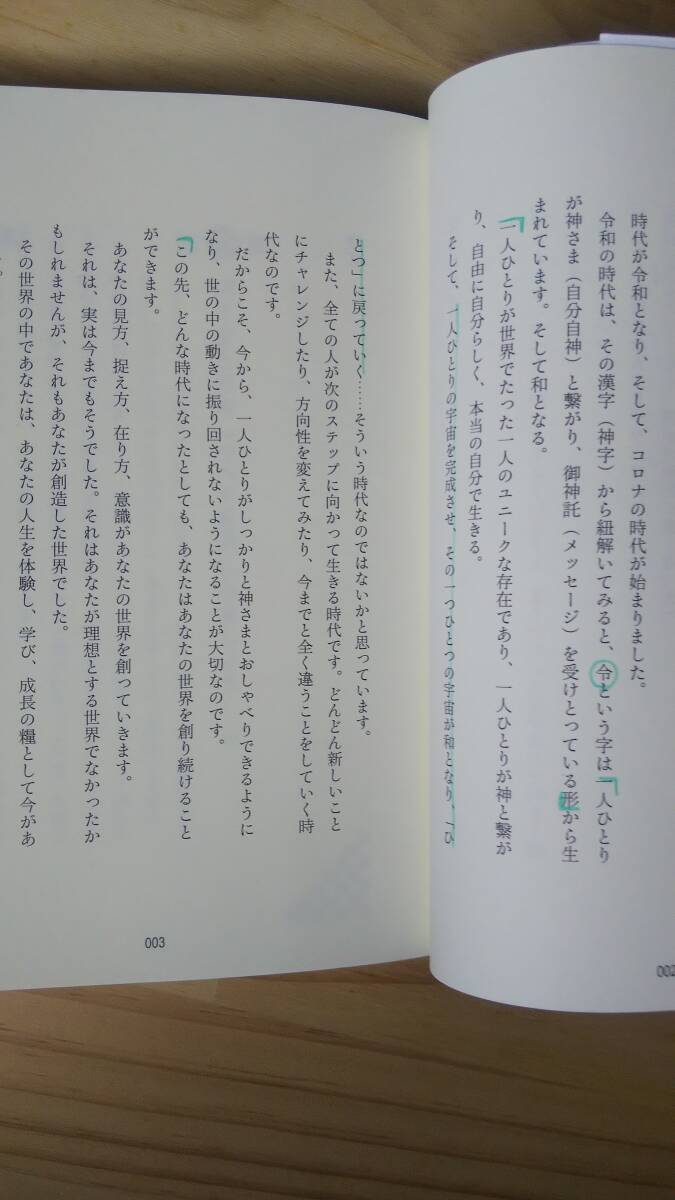 時代が令和となり、そして、コロナの時代が始まりました。
令和の時代は、その漢字（神字）から紐解いてみると、令という字は一人ひとり
が神さま（自分自神）と繋がり、御神託（メッセージ）を受けとっている形から生
まれています。そして和となる。
一人ひとりが世界でたった一人のユニークな存在であり、一人ひとりが神と繋が
り、自由に自分らしく、本当の自分で生きる。
そして、一人ひとりの宇宙を完成させ、その一つひとつの宇宙が和となり、「ひ
002
とつ」に戻っていく……そういう時代なのではないかと思っています。
また、全ての人が次のステップに向かって生きる時代です。どんどん新しいこと
にチャレンジしたり、方向性を変えてみたり、今までと全く違うことをしていく時
代なのです。
だからこそ、今から、一人ひとりがしっかりと神さまとおしゃべりできるように
なり、世の中の動きに振り回されないようになることが大切なのです。
この先、どんな時代になったとしても、あなたはあなたの世界を創り続けること
ができます。
あなたの見方、捉え方、在り方、意識があなたの世界を創っていきます。
それは、実は今までもそうでした。それはあなたが理想とする世界でなかったか
もしれませんが、それもあなたが創造した世界でした。
その世界の中であなたは、あなたの人生を体験し、学び、成長の糧として今があ
003